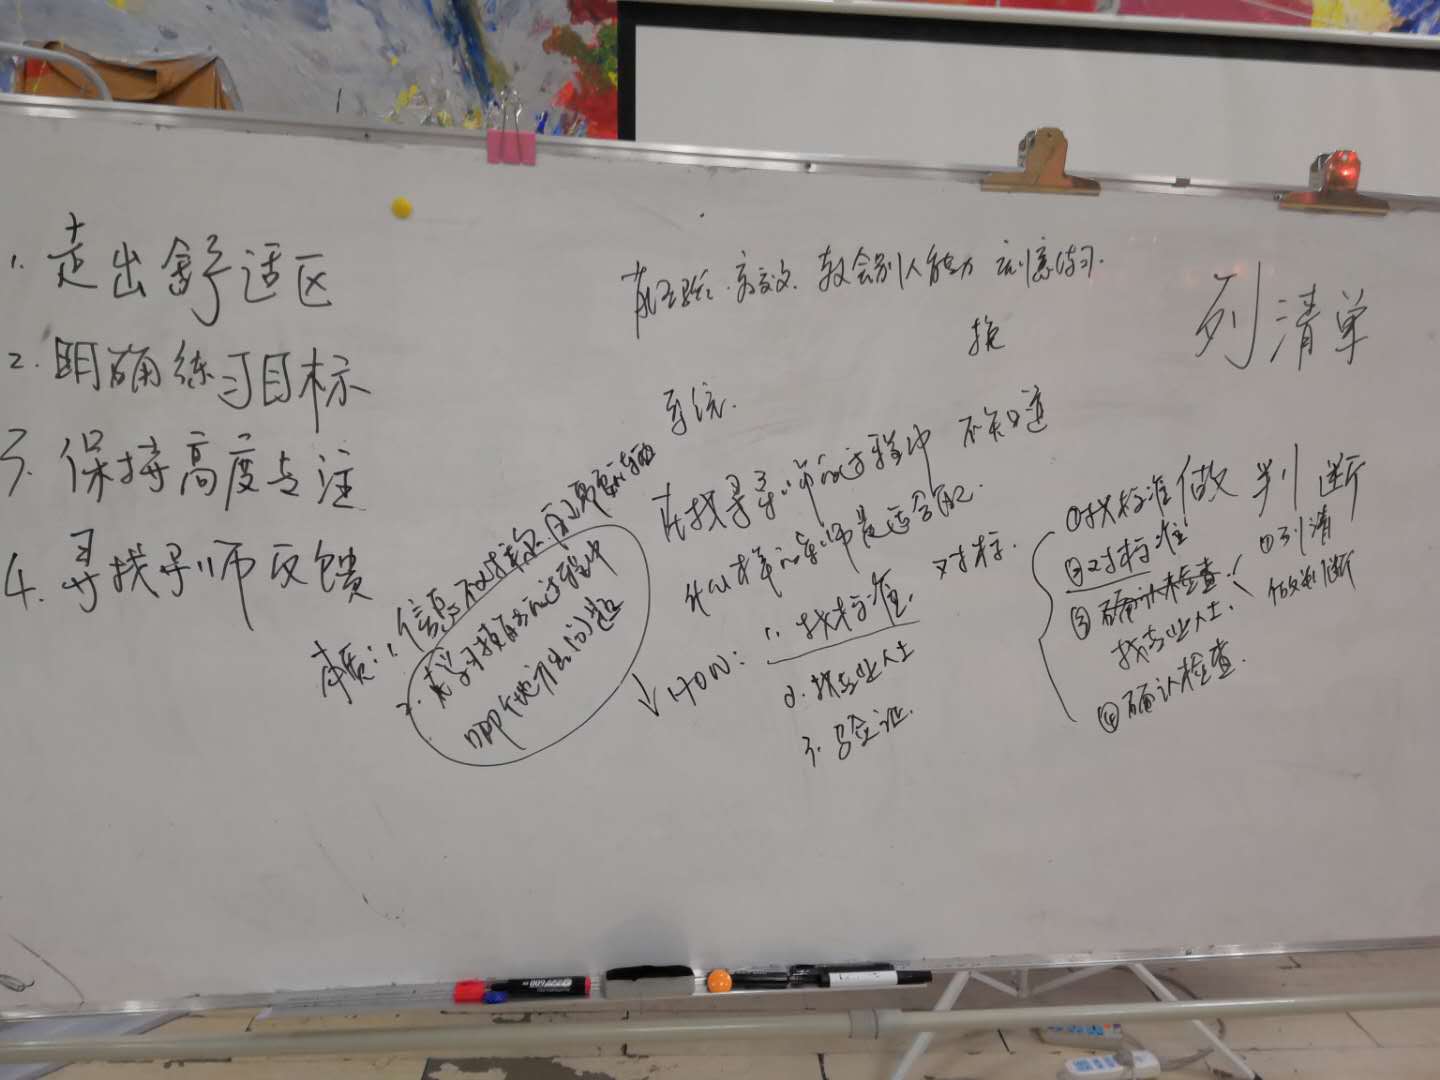 1. 走出舒适区
2. 明确练习目标
3. 保持高度专注
4. 寻找导师反馈
有经验. 高效. 教会别人能力 刻意练习.
列清单
系统.
在找寻导师的过程中 不知道
什么样的导师是适合的.
本质: 1. 信息不对称
2. 学习 的过程中
哪个地方出问题
↓ HOW: 1. 找标准. 对标.
2. 找专业人士
3. 验证.
做判断
①找标准
②对标准
③确认检查.
找专业人士.
④确认检查.
①列清
做判断